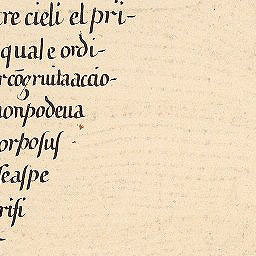 tre cieli el pri-
quale ordi-
r cõgruita accio-
non podeua
orpo sus
se aspe
risi